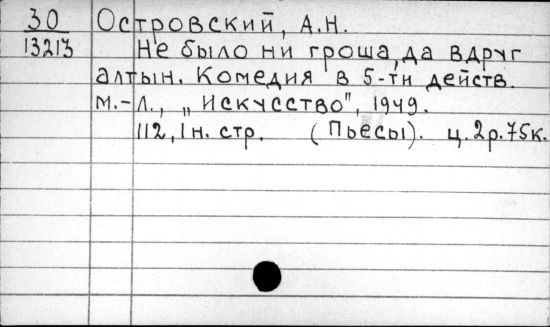 30 Островский, А.Н.
13213 Не было ни гроша, да вдруг
алтын. Комедия в 5-ти действ.
М.-Л., „Искусство", 1949.
112, 1 н. стр. (Пьесы). ц. 2р. 75к.